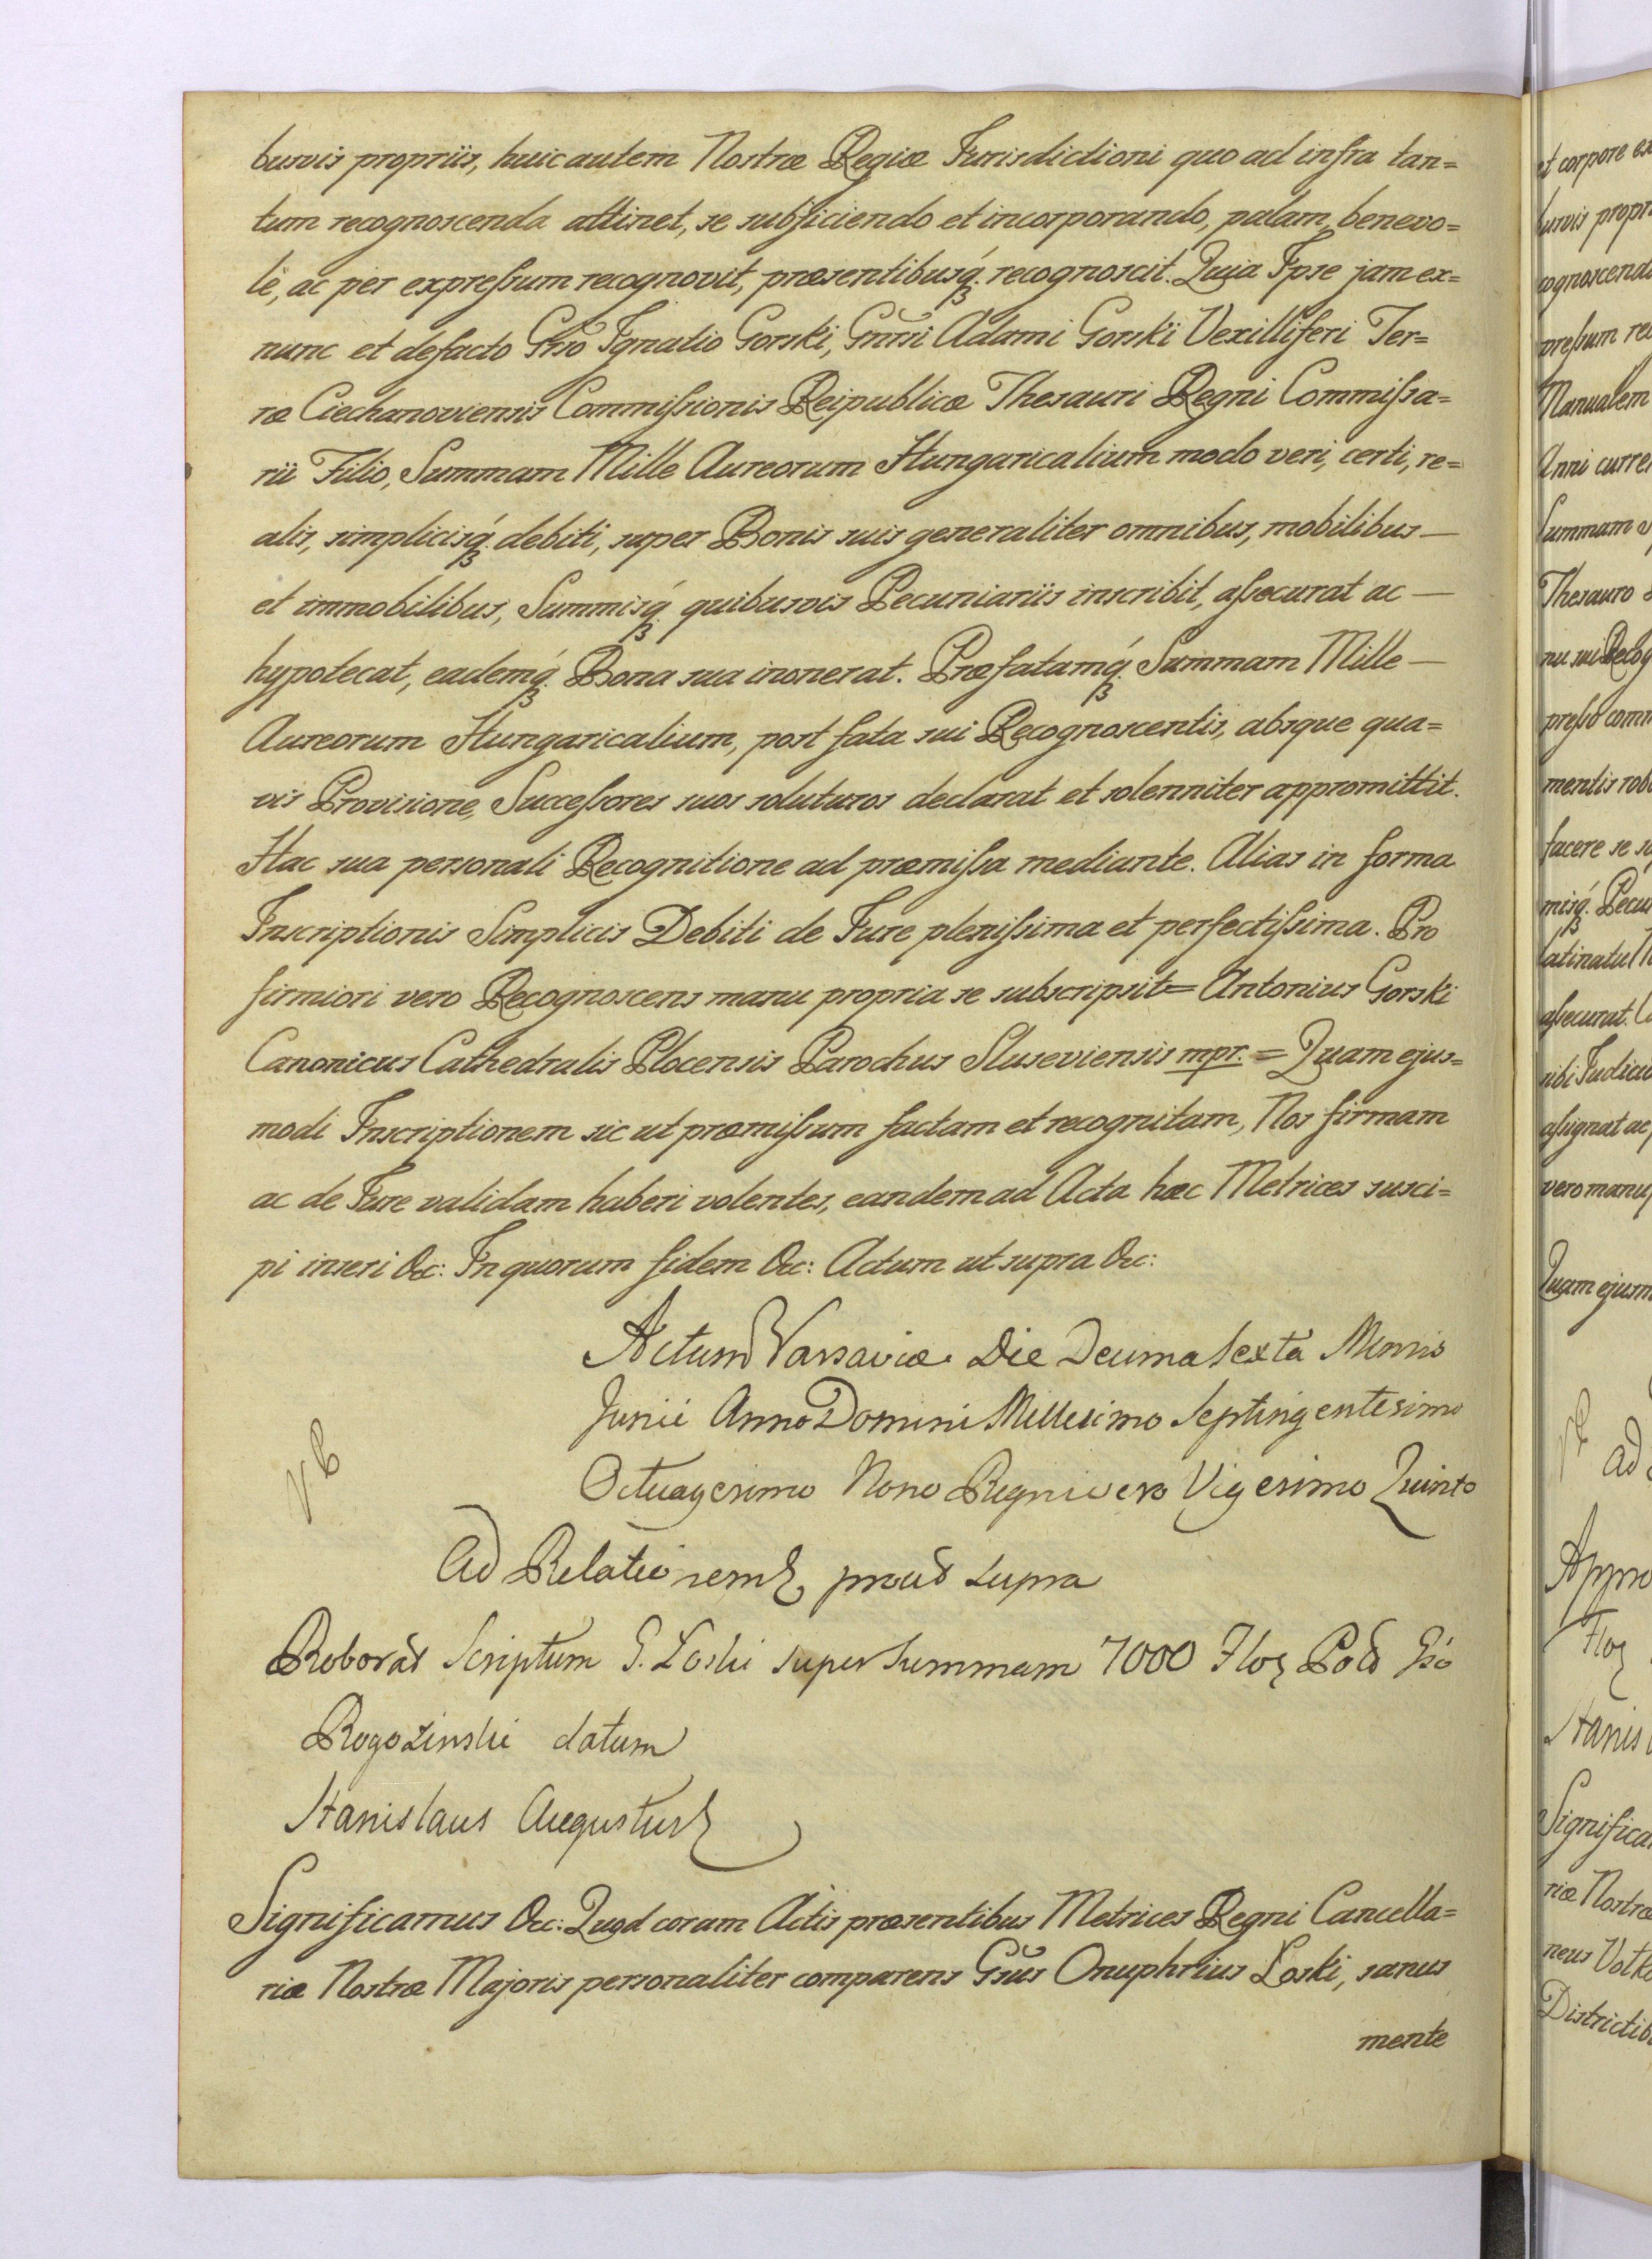 busvis propriis, huic autem Nostræ Regiæ Jurisdictioni quo ad infra tan=
tum recognoscenda attinet, se subjiciendo et incorporando, palam, benevo=
lè, ac per expreſsum recognovit, præsentibusq́ꝫ recognoscit. Quia Ipse jam ex=
nunc et defacto Gnso Ignatio Gorski, Gnsi Adami Gorski Vexilliferi Ter=
ræ Ciechanoviensis Commiſsionis Reipublicæ Thesauri Regni Commiſsa=
rii Filio, Summam Mille Aureorum Hungaricalium modo veri, certi, re=
alis, simplicisq́ꝫ debiti, super Bonis suis generaliter omnibus, mobilibus —
et immobilibus, Summisq́ꝫ quibusvis Pecuniariis inscribit, aſsecurat ac —
hypotecat, eademq́ꝫ Bona sua inonerat. Præfatamq́ꝫ Summam Mille —
Aureorum Hungaricalium, post fata sui Recognoscentis, absque qua=
vis Provisione, Succeſsores suos soluturos declarat et solenniter appromittit.
Hac sua personali Recognitione ad præmiſsa mediante. Alias in forma
Inscriptionis Simplicis Debiti de Jure pleniſsima et perfectiſsima. Pro
firmiori vero Recognoscens manu propria se subscripsit = Antonius Gorski
Canonicus Cathedralis Plocensis Parochus Sluseviensis mpr. = Quam ejus=
modi Inscriptionem sic ut præmiſsum factam et recognitam, Nos firmam
ac de Jure validam haberi volentes, eandem ad Acta hæc Metrices susci=
pi inseri &c: In quorum fidem &c: Actum ut supra &c:
Actum Varsaviæ Die Decima Sexta Mensis
Junii Anno Domini Millesimo Septingentesimo
Octuagesimo Nono Regni vero Vigesimo Quinto
Ad Relationem prout supra
Roborat Scriptum G. Loski super Summam 7000 Flor Pol Gso
Rogozinski datum
Stanislaus Augustus
Significamus &c: Quod coram Actis præsentibus Metrices Regni Cancella=
riæ Nostræ Majoris personaliter comparens Gsus Onuphrius Loski, sanus
mente